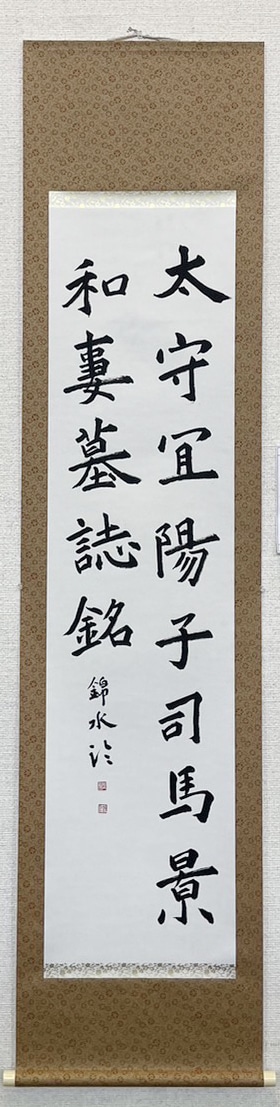 太守宜陽子司馬景
和妻墓誌銘
錦水